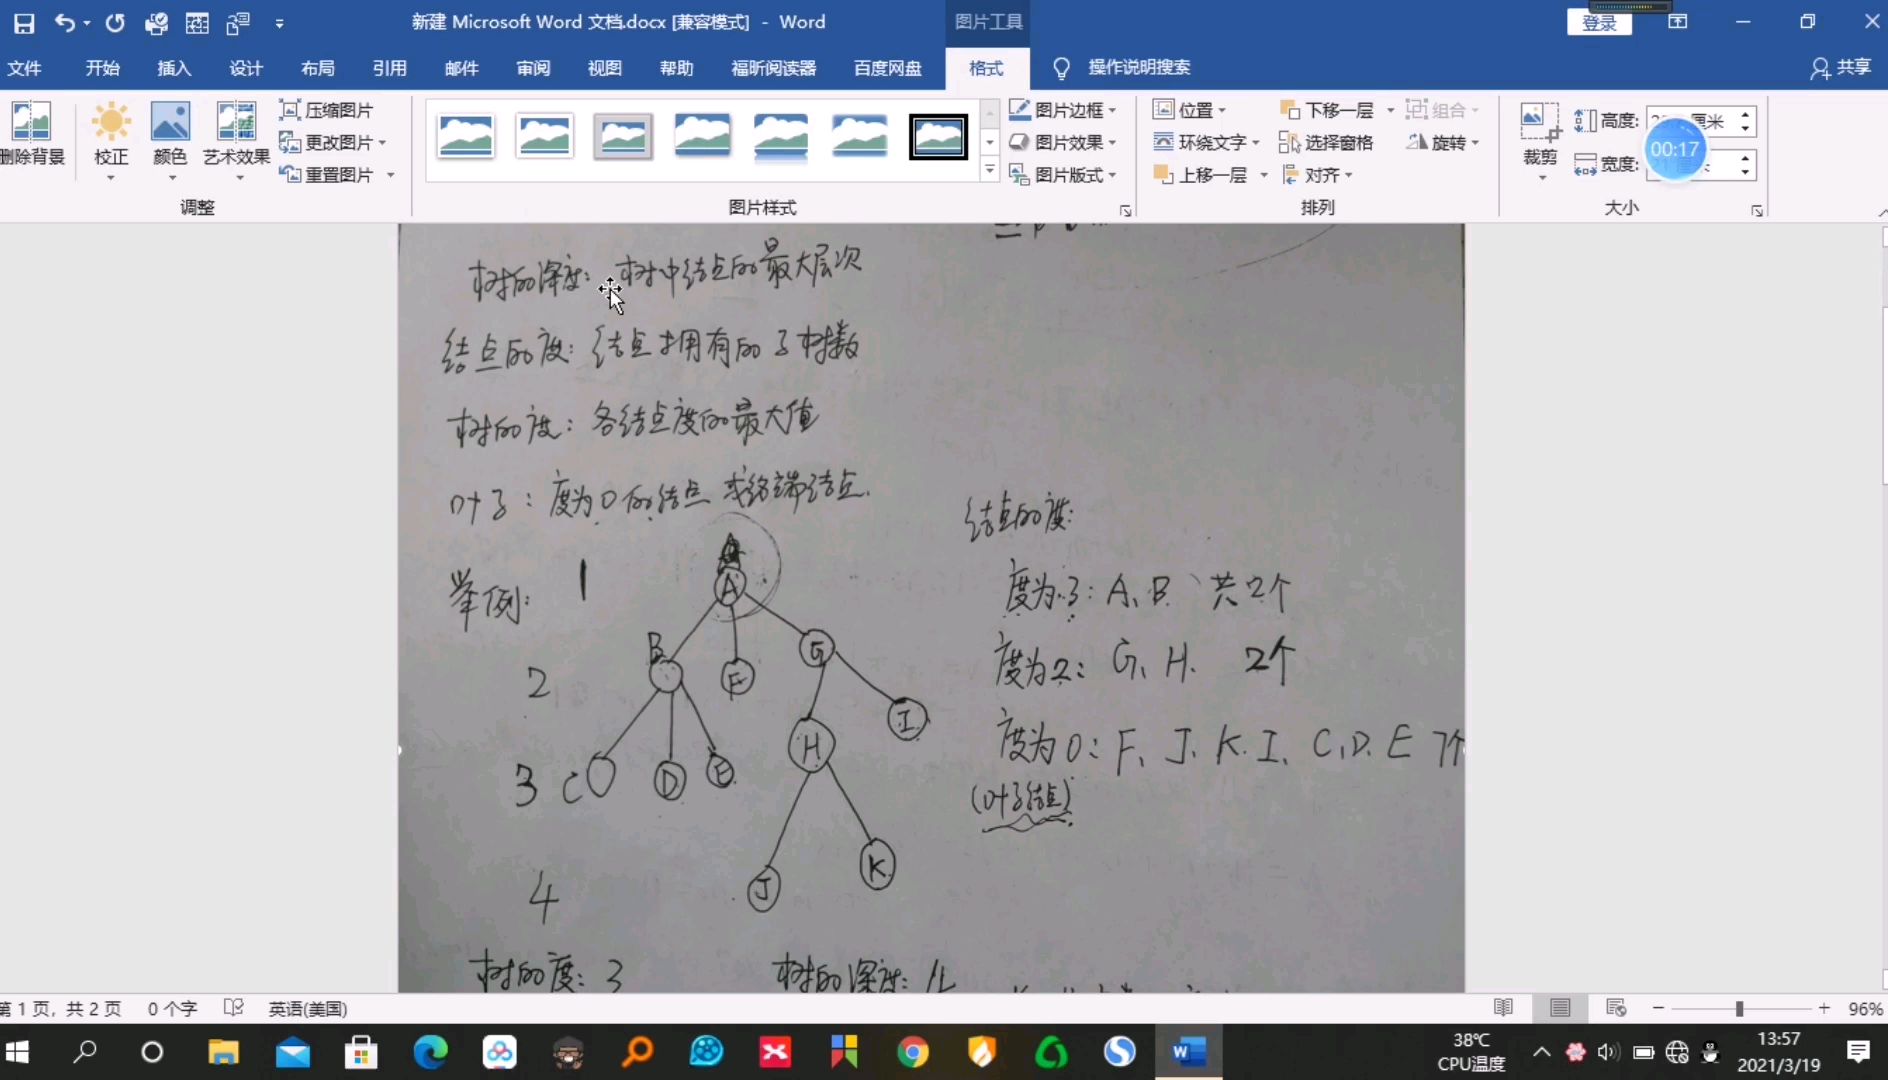 新建 Microsoft Word 文档.docx [兼容模式] - Word
图片工具
登录
文件 开始 插入 设计 布局 引用 邮件 审阅 视图 帮助 福昕阅读器 百度网盘 格式 操作说明搜索 共享
删除背景 校正 颜色 艺术效果
压缩图片
更改图片
重置图片
图片边框
图片效果
图片版式
位置
环绕文字
上移一层
下移一层
选择窗格
对齐
组合
旋转
裁剪
高度: 厘米
宽度:
00:17
调整 图片样式 排列 大小
树的深度: 树中结点的最大层次
结点的度: 结点拥有的子树数
树的度: 各结点度的最大值
叶子: 度为0的结点 或终端结点.
举例:
1
A
2
B F G
3
C D E H I
4
J K
结点的度:
度为3: A、B、共2个
度为2: G、H. 2个
度为0: F、J、K.I、C、D、E 7个
(叶子结点)
树的度: 3 树的深度: 4
第 1 页, 共 2 页 0 个字 英语(美国) 96%
38℃
CPU温度
13:57
2021/3/19